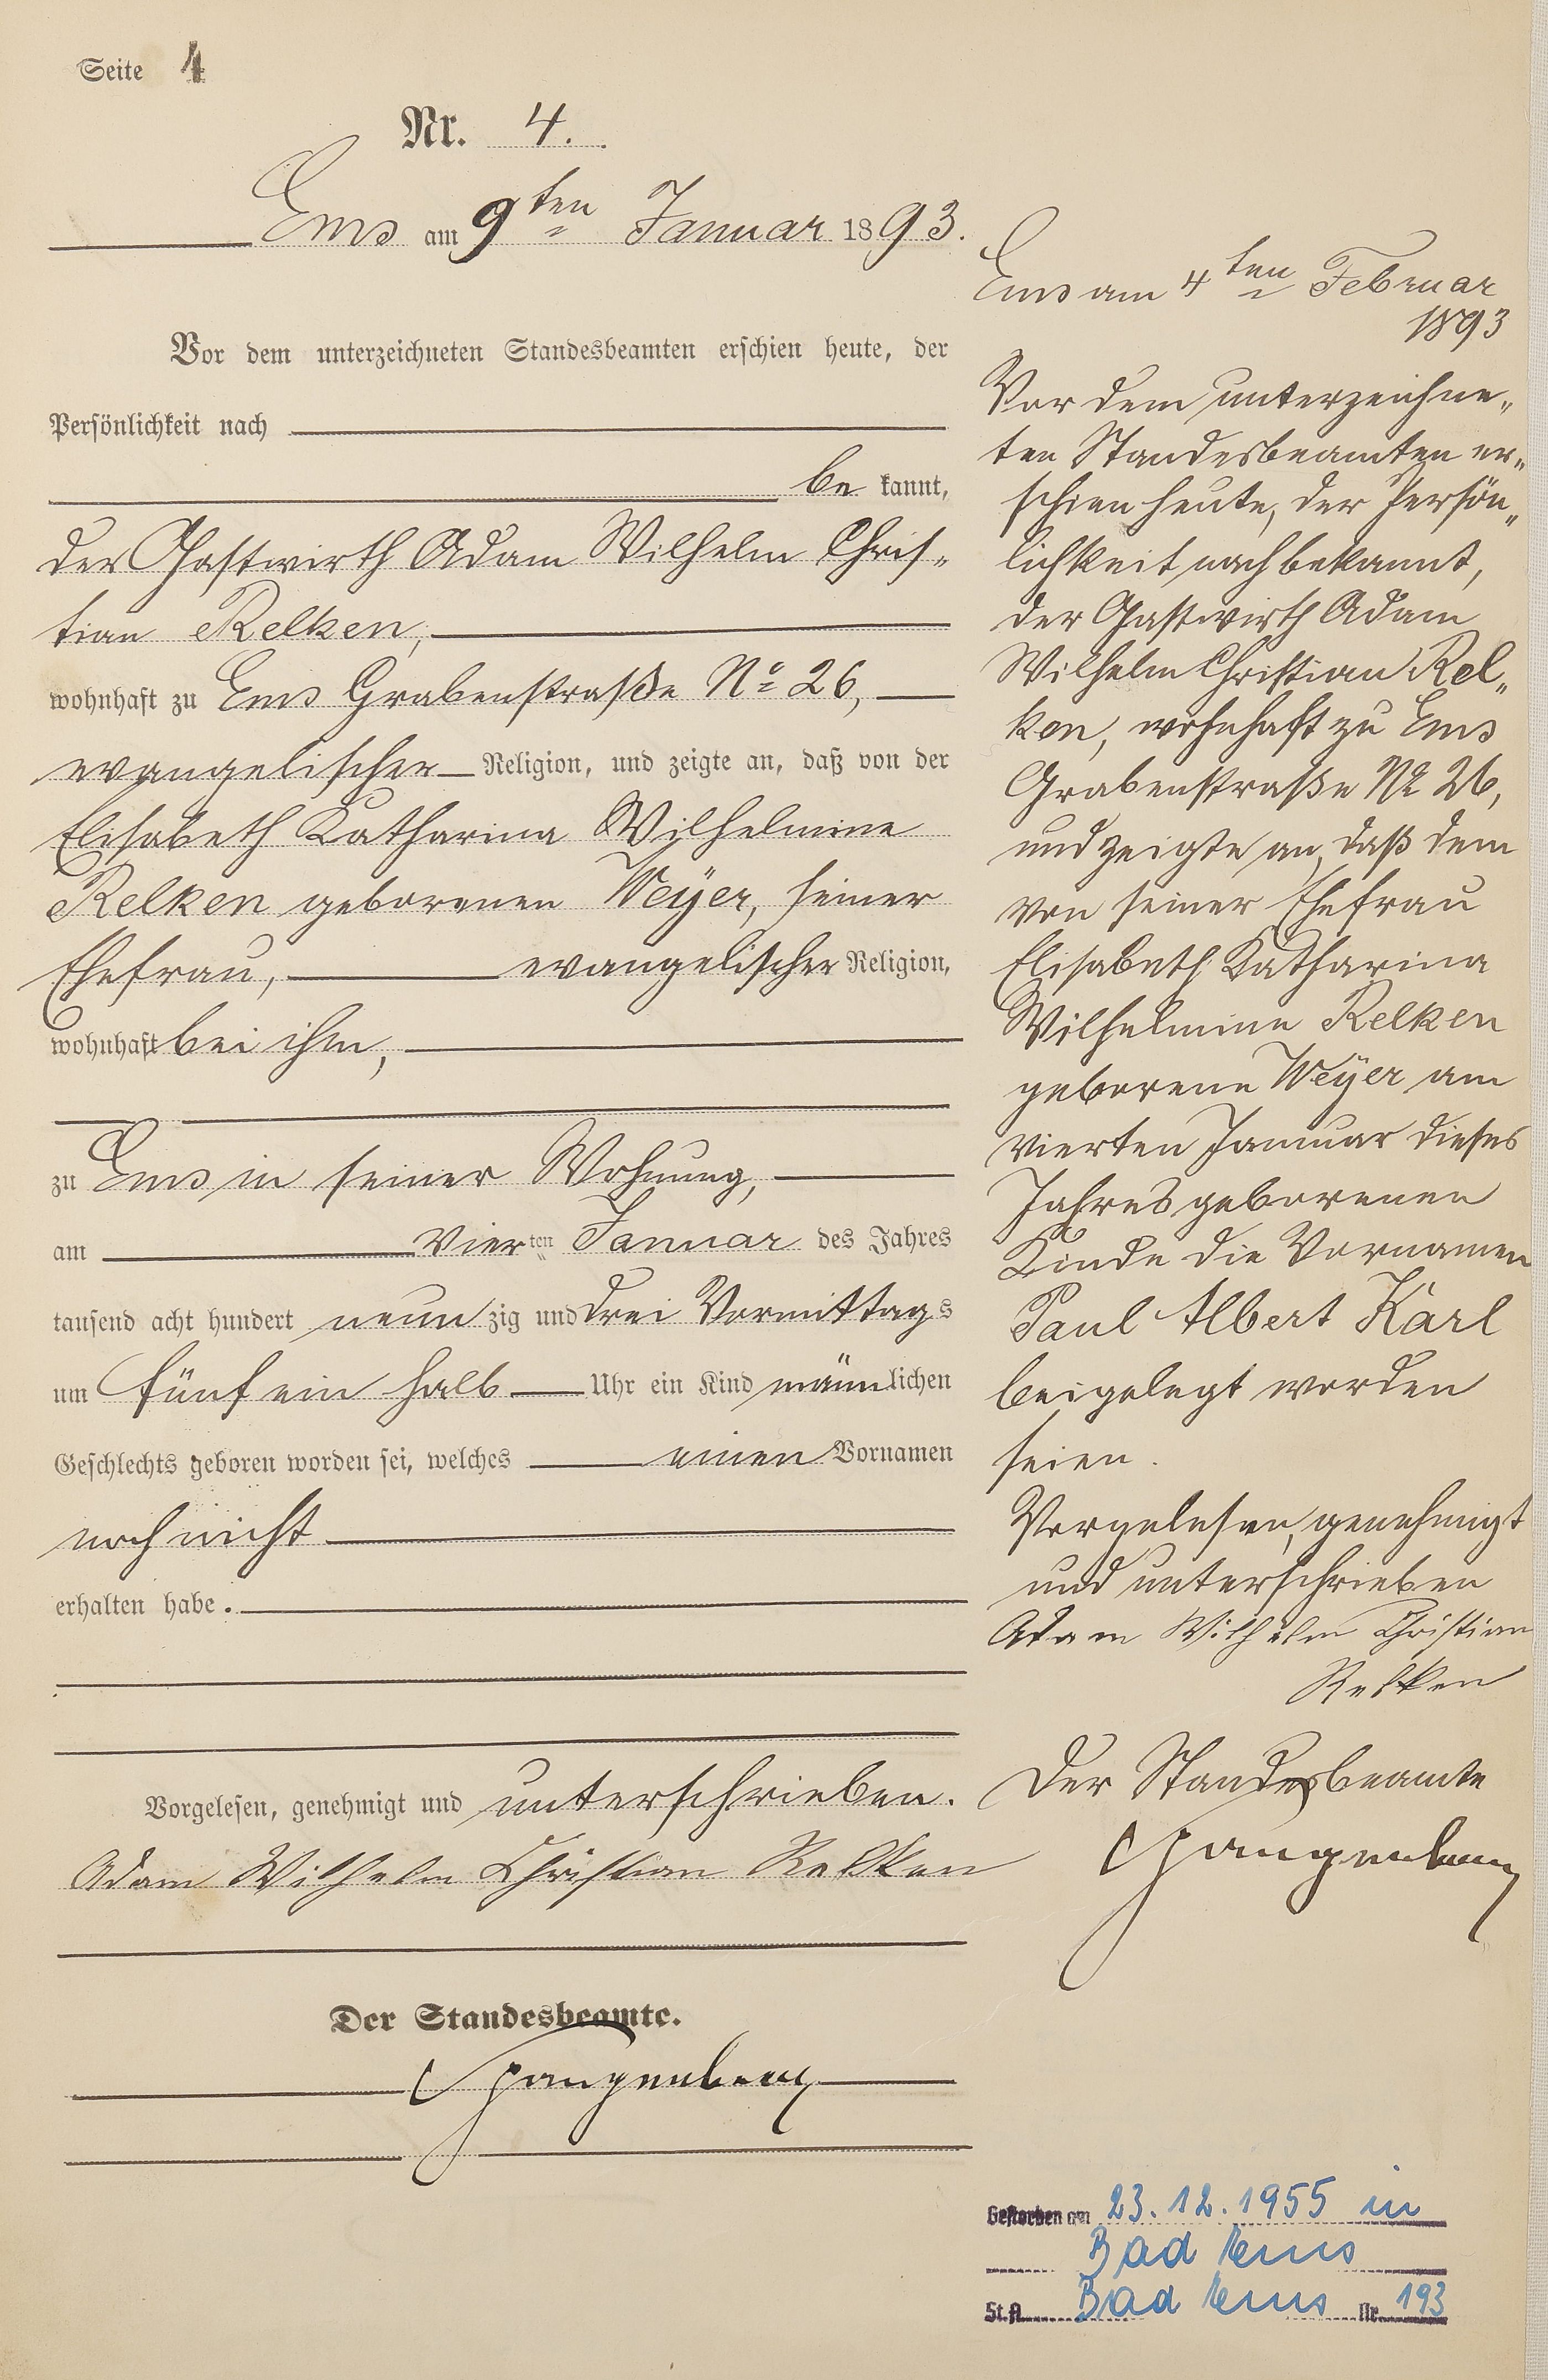 Seite 4
Nr. 4.
Ems am 9ten Januar 1893.
Vor dem unterzeichneten Standesbeamten erschien heute, der
Persönlichkeit nach
be kannt,
der Gastwirth Adam Wilhelm Chris-
tian Relken,
wohnhaft zu Ems Grabenstraße No 26,
evangelischer Religion, und zeigte an, daß von der
Elisabeth Katharina Wilhelmine
Relken geborenen Weÿer, seiner
Ehefrau, evangelischer Religion,
wohnhaft bei ihm,
zu Ems in seiner Wohnung,
am vierten Januar des Jahres
tausend acht hundert neun zig und drei Vormittags
um fünf ein halb Uhr ein Kind männlichen
Geschlechts geboren worden sei, welches einen Vornamen
noch nicht
erhalten habe.
Vorgelesen, genehmigt und unterschrieben.
Adam Wilhelm Christian Relken
Der Standesbeamte.
Spangenberg
Ems am 4ten Februar
1893
Vor dem unterzeichne„
ten Standesbeamten er„
schien heute, der Persön„
lichkeit nach bekannt,
der Gastwirth Adam
Wilhelm Christian Rel„
ken, wohnhaft zu Ems
Grabenstraße No 26,
und zeigte an, daß dem
von seiner Ehefrau
Elisabeth Katharina
Wilhelmine Relken
geborene Weÿer am
vierten Januar dieses
Jahres geborenen
Kinde die Vornamen
Paul Albert Karl
beigelegt worden
seien.
Vorgelesen, genehmigt
und unterschrieben
Adam Wilhelm Christian
Relken
Der Standesbeamte
Spangenberg
Gestorben am 23.12.1955 in
Bad Ems
St.A. Bad Ems Nr. 193